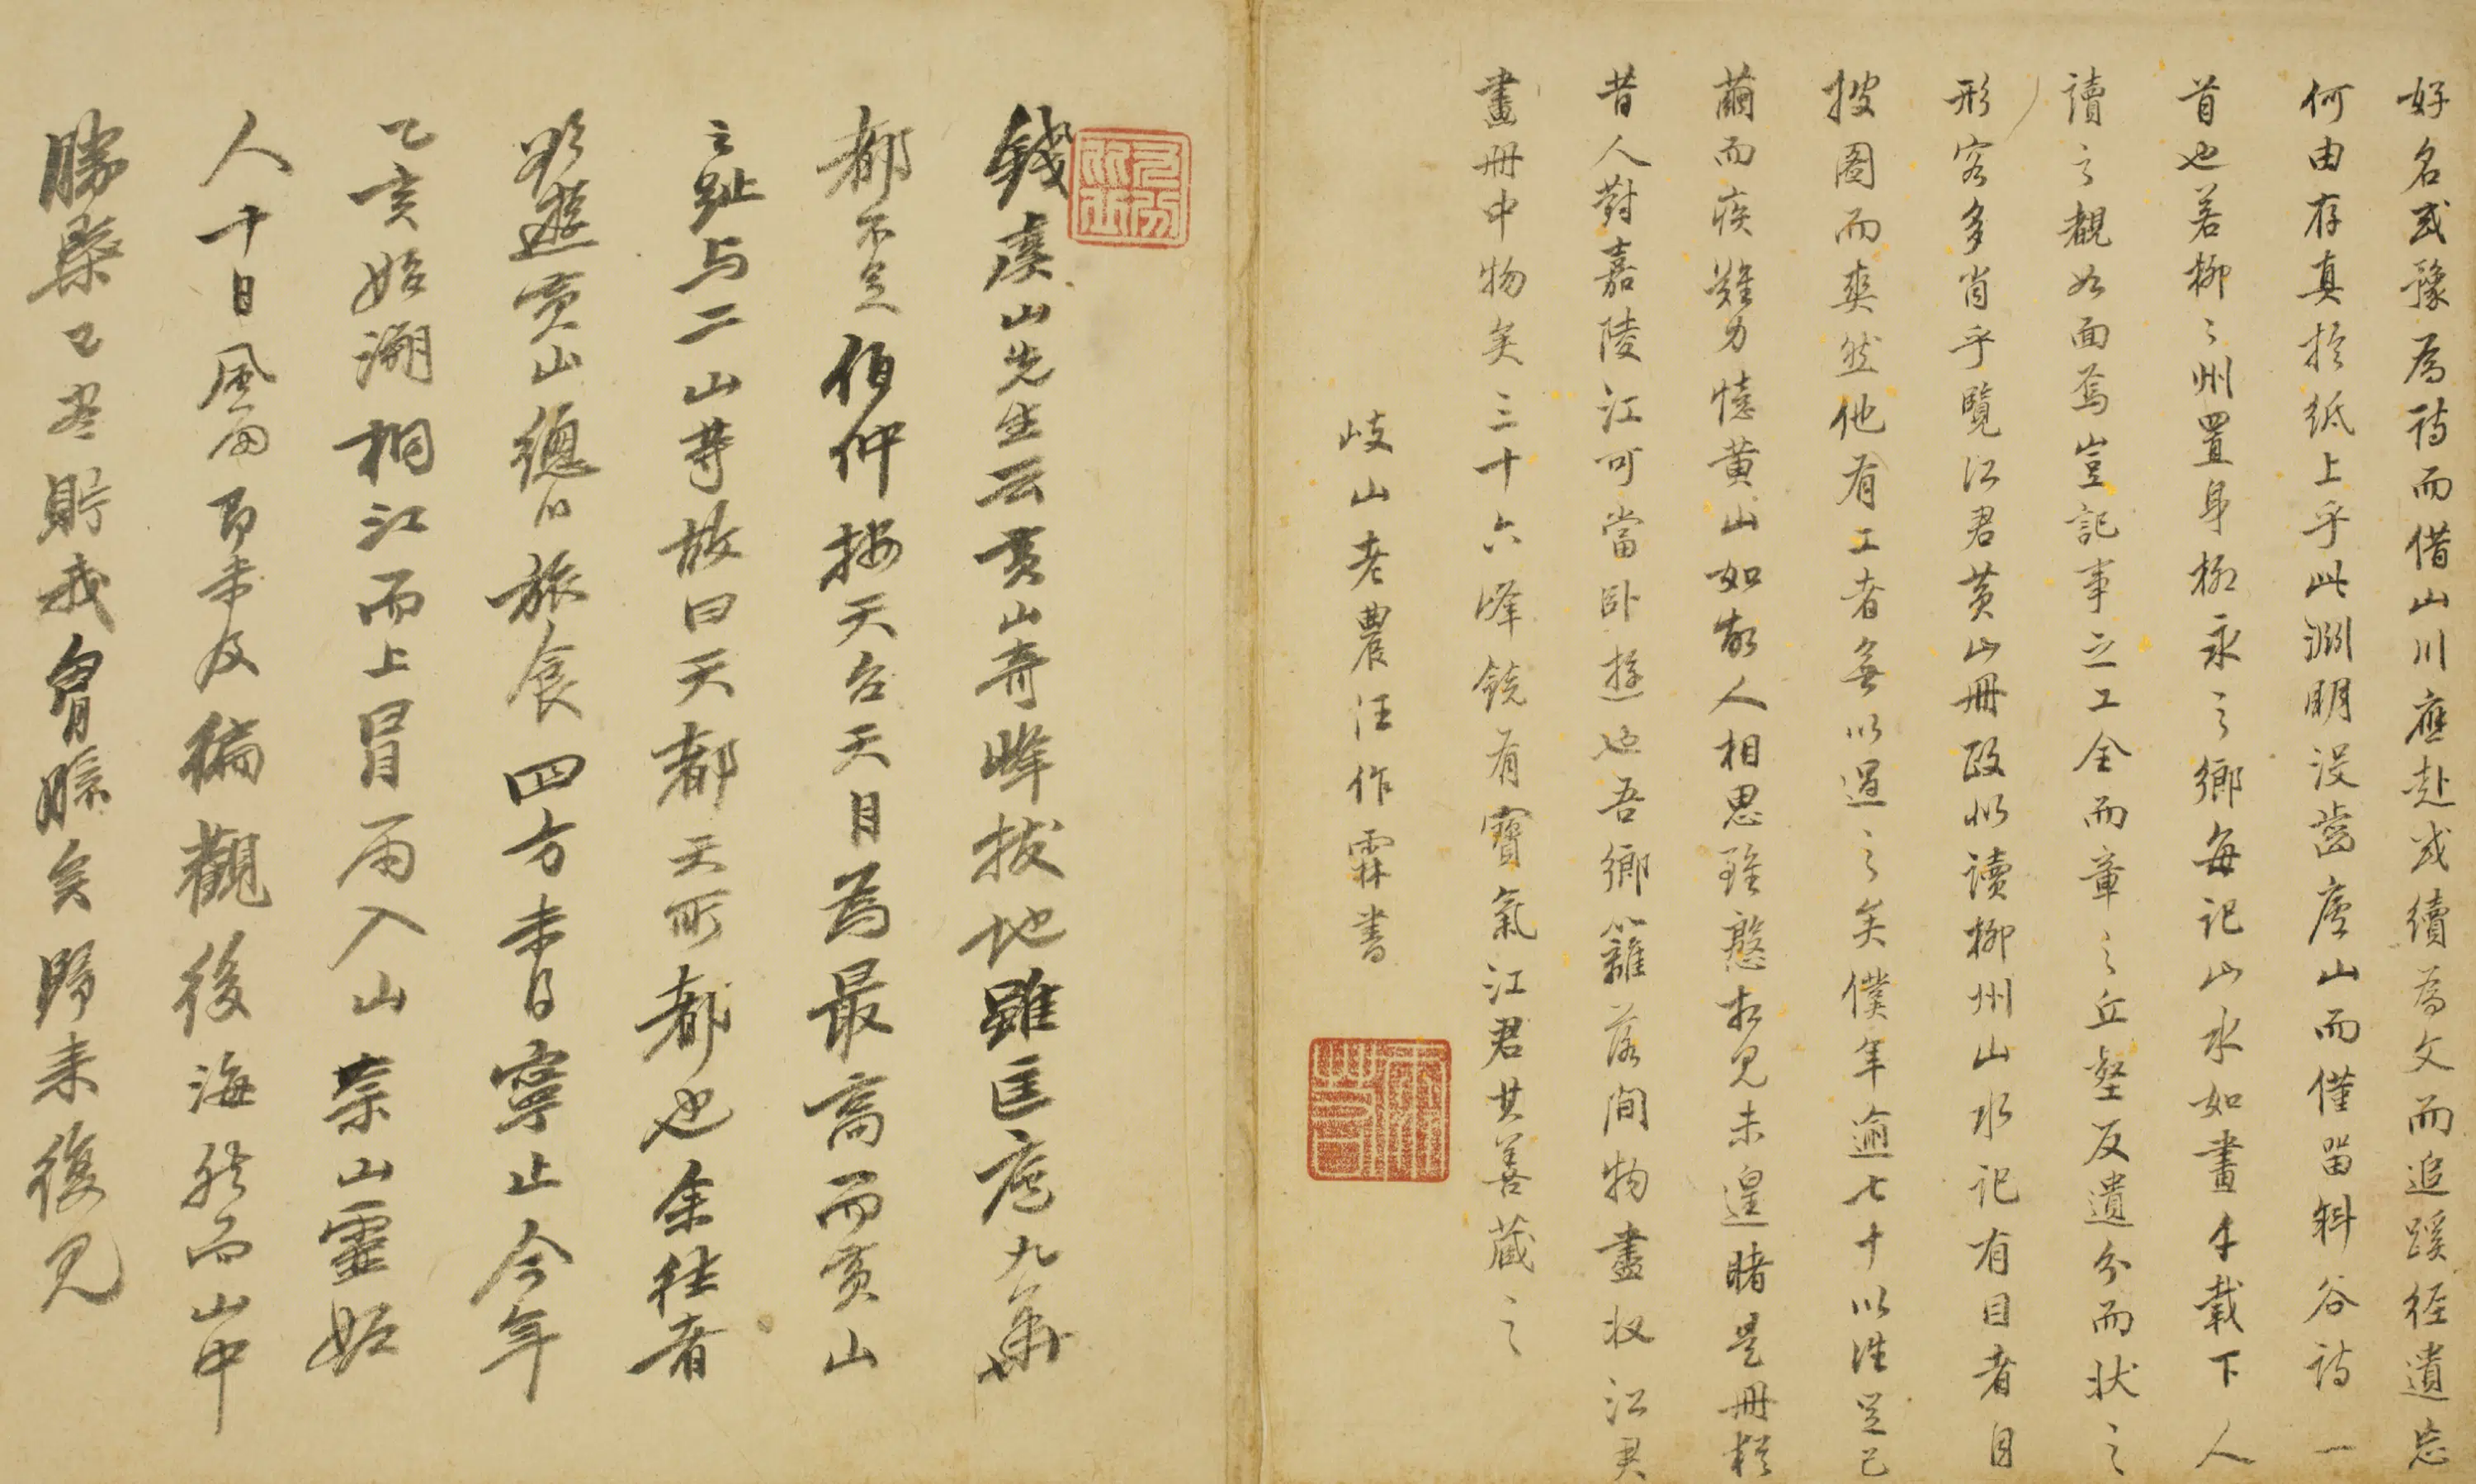 好名或豫為詩而借山川應赴或續為文而追蹊徑遺忘
何由存真於紙上乎此淵明沒齒廬山而僅留斜谷詩一
首也若柳柳州置身柳永之鄉每記山水如畫千載下人
讀之覩如面焉豈記事之工全而章之丘壑反遺分而狀之
形容多肖乎覽江君黃山冊政似讀柳州山水記有目者自
披圖而爽然他有工者無以過之矣僕年逾七十以往足已
繭而疾難力憶黃山如故人相思雖愨相見未遑睹是冊頻
昔人對嘉陵江可當臥遊也吾鄉籬落間物盡收江君
畫冊中物矣三十六峰饒有寶氣江君其善藏之
岐山老農汪作霖書
錢虞山先生云黃山奇峰拔地雖匡廬九華
都不足伯仲按天台天目為最高而黃山
之趾与二山等故曰天都天所都也余往者
欲遊黃山總以旅食四方未得寧止今年
乙亥始溯桐江而上冒雨入山禁山靈妬
人十日風雨即未及徧觀後海然而山中
勝槩已盡貯我胷臆矣歸來復見